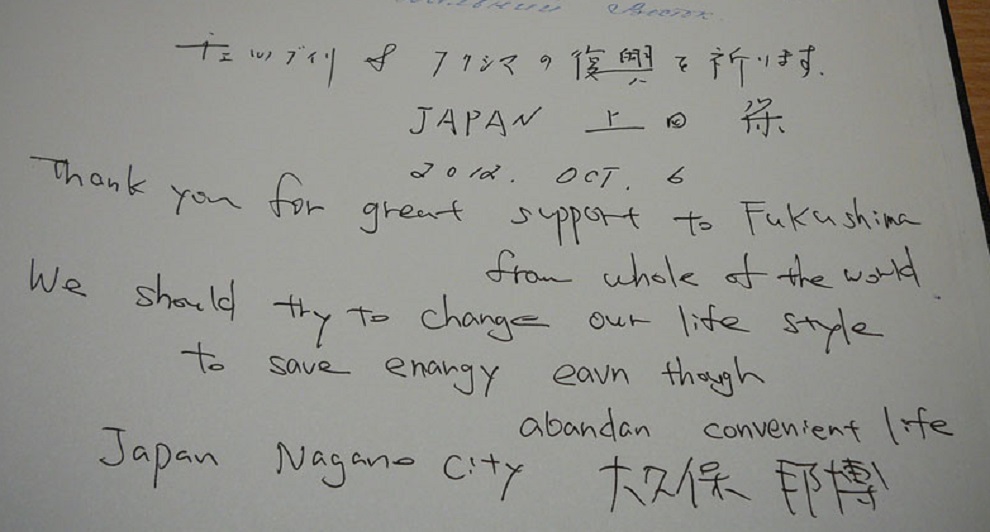 チェルノブイリ & フクシマの復興を祈ります.
JAPAN 上田
2012. OCT. 6
Thank you for great support to Fukushima
from whole of the world.
We should try to change our life style
to save enangy eavn though
abandan convenient life
Japan Nagano City 大久保 邦博